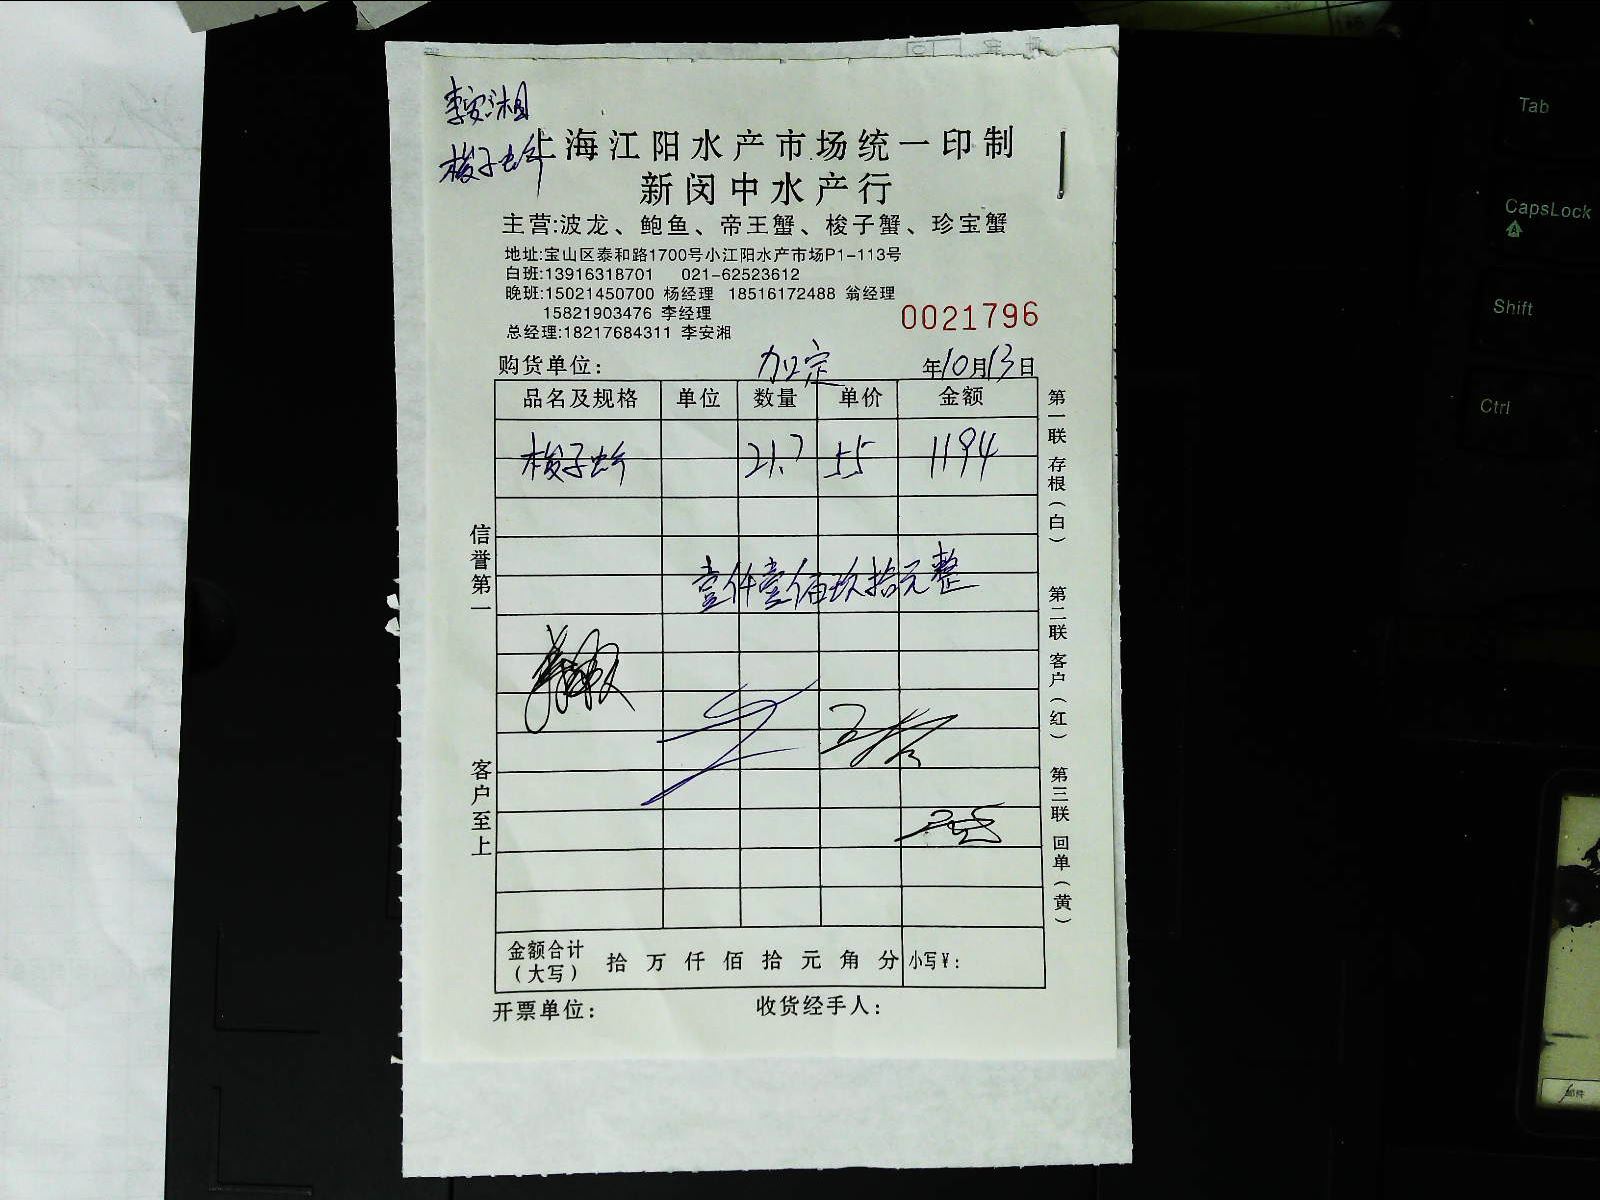 李安湘
梭子蟹
上海江阳水产市场统一印制
新闵中水产行
主营:波龙、鲍鱼、帝王蟹、梭子蟹、珍宝蟹
地址:宝山区泰和路1700号小江阳水产市场P1-113号
白班:13916318701 021-62523612
晚班:15021450700 杨经理 18516172488 翁经理
15821903476 李经理
总经理:18217684311 李安湘
0021796
购货单位: 加定 年10月13日
品名及规格 单位 数量 单价 金额
梭子蟹 21.7 55 1194
壹仟壹佰玖拾元整
信誉第一
客户至上
第一联 存根(白)
第二联 客户(红)
第三联 回单(黄)
金额合计(大写) 拾 万 仟 佰 拾 元 角 分 小写¥:
开票单位: 收货经手人:
Tab
CapsLock
Shift
Ctrl